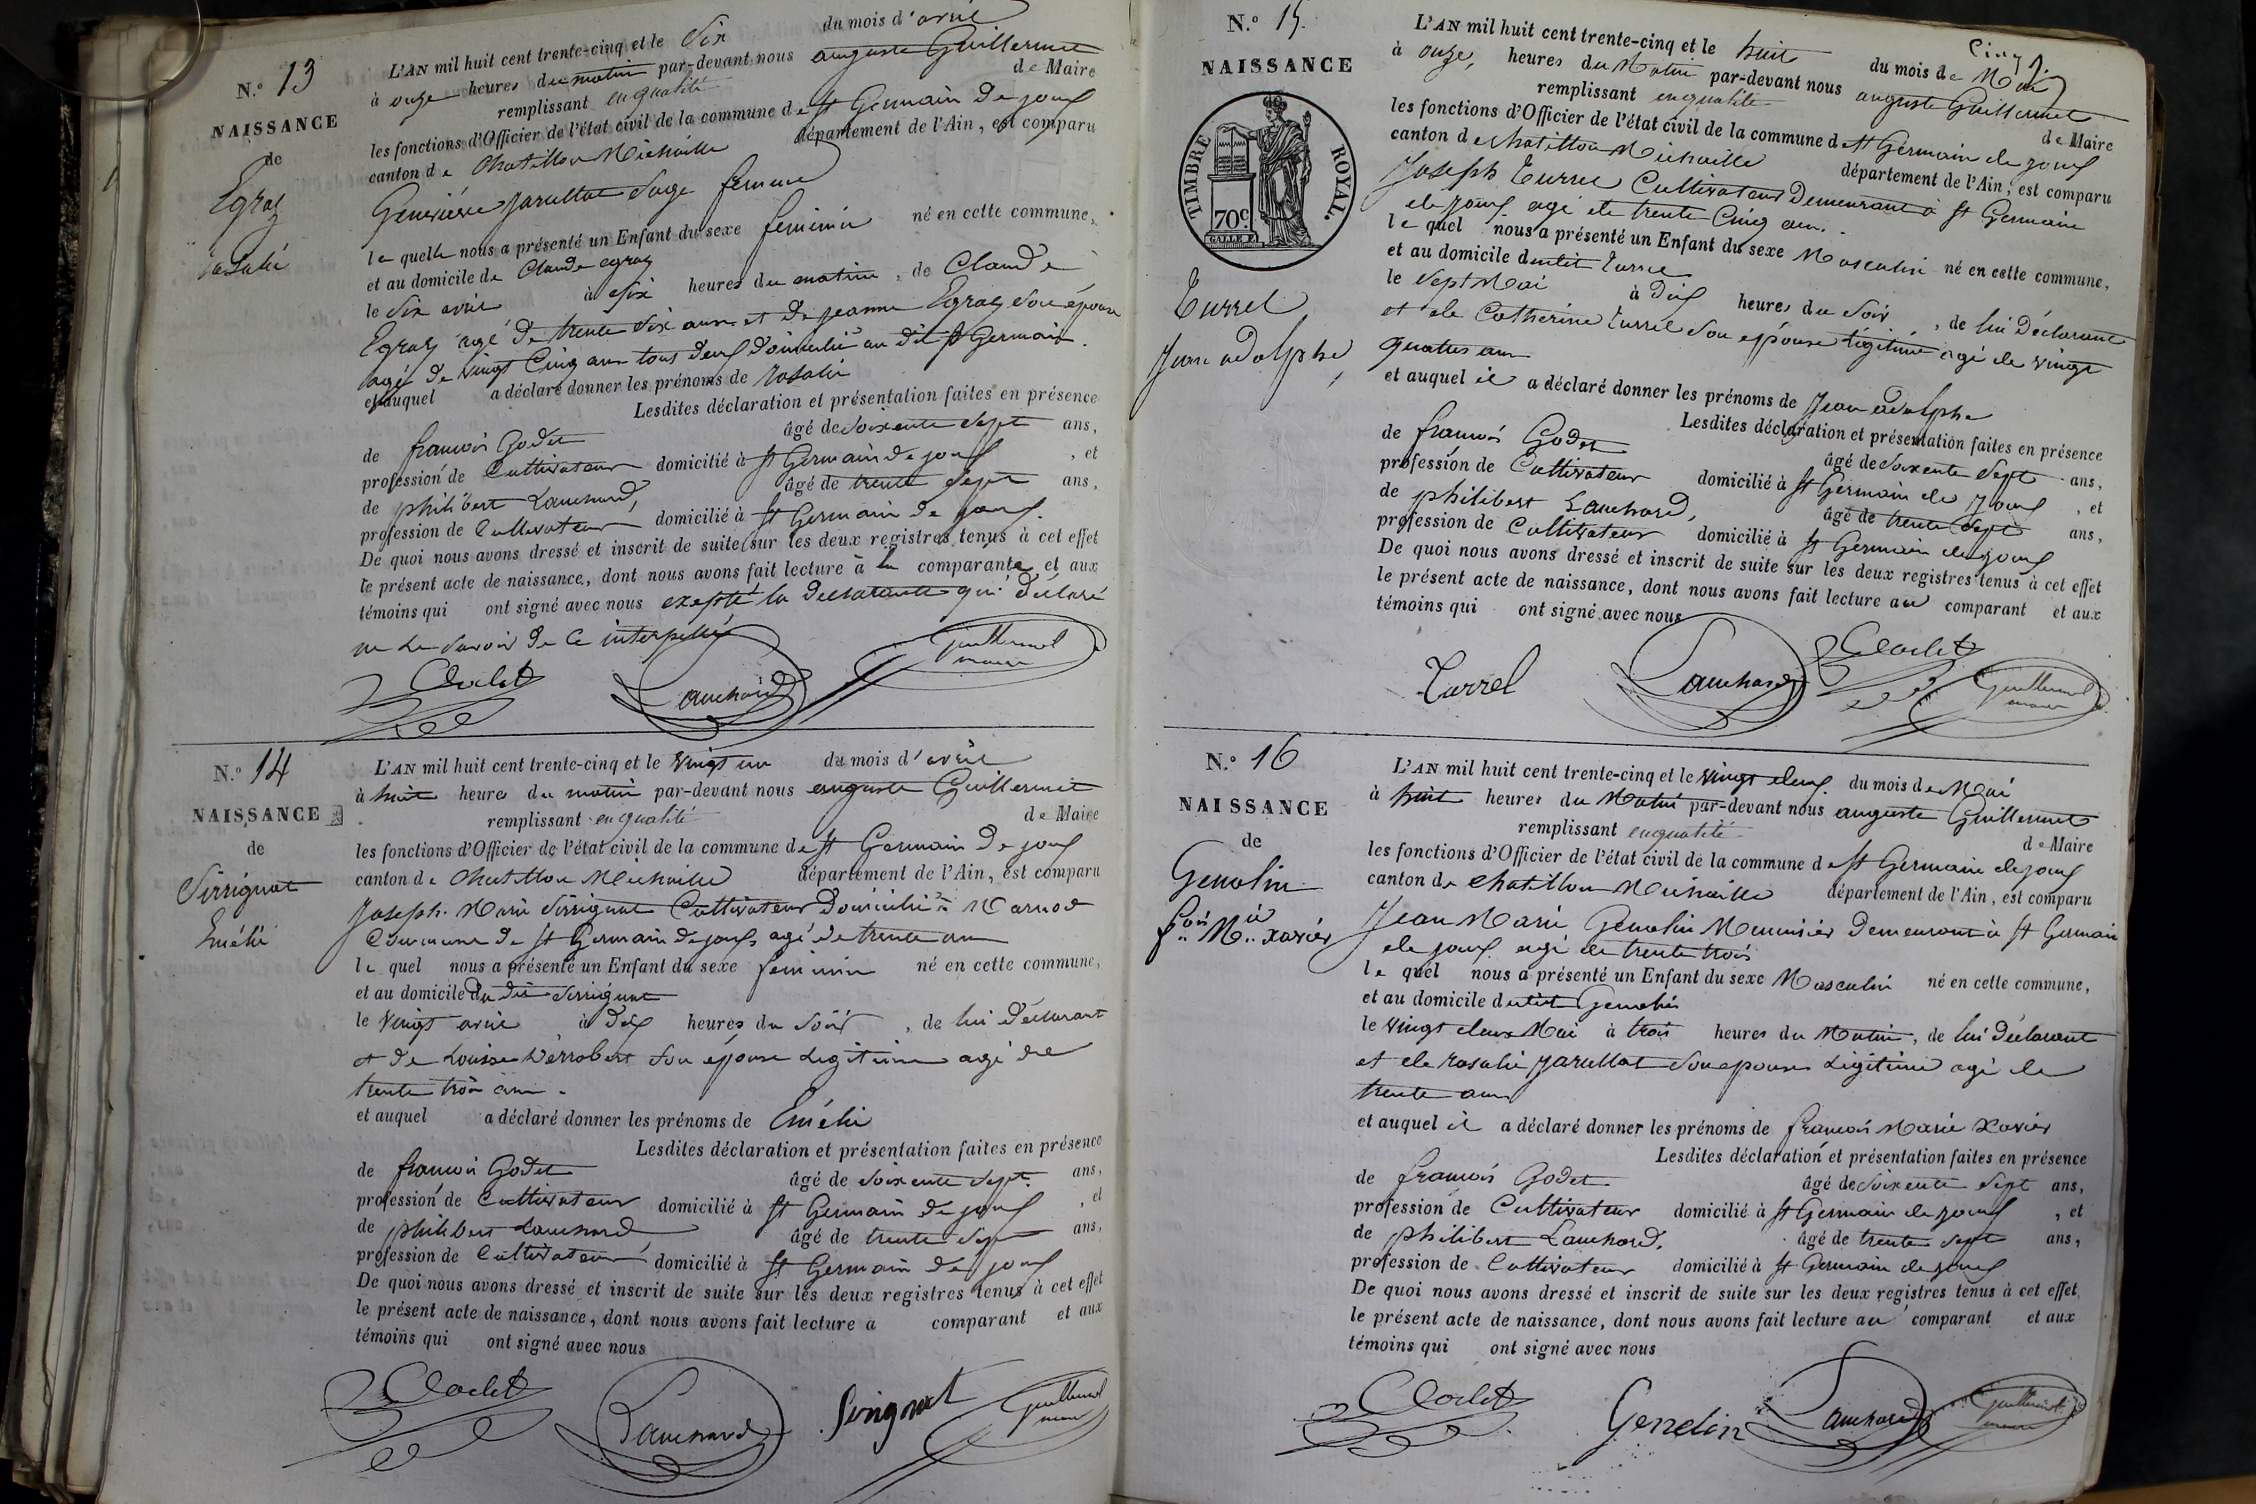 N.° 13
NAISSANCE
de
Egraz
rosalie
L'AN mil huit cent trente-cinq et le Six du mois d'avril
à onze heures du matin par-devant nous auguste Guillermet
remplissant en qualité de Maire
les fonctions d'Officier de l'état civil de la commune de St Germain de joux
canton de Chatillon Michaille département de l'Ain, est comparu
Genevieve jarullat Sage femme
le quelle nous a présenté un Enfant du sexe feminin né en cette commune,
et au domicile de Claude egraz
le Six avril à Six heures du matin, de Claude
Egraz agé de trente Six ans et de jeanne Egraz Son épouse
agé de vingt Cinq ans tous deux domicilié au dit St Germain.
et auquel a déclaré donner les prénoms de rosalie
Lesdites déclaration et présentation faites en présence
de francois Godet âgé de Soixente Sept ans,
profession de Cultivateur domicilié à St Germain de joux, et
de philibert Lanchard, âgé de trente Sept ans,
profession de Cultivateur domicilié à St Germain de joux.
De quoi nous avons dressé et inscrit de suite sur les deux registres tenus à cet effet
le présent acte de naissance, dont nous avons fait lecture à la comparante et aux
témoins qui ont signé avec nous exepté la declarante qui déclaré
ne le Savoir de ce interpellé
Godet Lanchard Guillermet maire
N.° 14
NAISSANCE
de
Sirrignat
Emélie
L'AN mil huit cent trente-cinq et le vingt un du mois d'avril
à huit heures du matin par-devant nous auguste Guillermet
remplissant en qualité de Maire
les fonctions d'Officier de l'état civil de la commune de St Germain de joux
canton de Chatillon Michaille département de l'Ain, est comparu
Joseph Marie Sirrignat Cultivateur Domicilié à Marnod
Commune de St Germain de joux agé de trente ans
le quel nous a présenté un Enfant du sexe feminin né en cette commune,
et au domicile du dit Sirrignat
le vingt avril à dix heures du Soir, de lui déclarant
et de Louise Sérrobert Son épouse Légitime agé de
trente trois ans.
et auquel a déclaré donner les prénoms de Emélie
Lesdites déclaration et présentation faites en présence
de francois Godet âgé de Soixente Sept ans,
profession de Cultivateur domicilié à St Germain de joux, et
de philibert Lanchard âgé de trente Sept ans,
profession de Cultivateur domicilié à St Germain de joux
De quoi nous avons dressé et inscrit de suite sur les deux registres tenus à cet effet
le présent acte de naissance, dont nous avons fait lecture a comparant et aux
témoins qui ont signé avec nous
Godet Lanchard Sirignat Guillermet maire
Cinq
N.° 15.
NAISSANCE
TIMBRE ROYAL.
70 c.
Turrel
Jean adolphe,
L'AN mil huit cent trente-cinq et le huit du mois de Mai
à onze, heures du Matin par-devant nous auguste Guillermet
remplissant en qualité de Maire
les fonctions d'Officier de l'état civil de la commune de St Germain de joux
canton de chatillon Michaille département de l'Ain, est comparu
Joseph Turrel Cultivateur Demeurant à St Germain
de joux agé de trente Cinq ans.
le quel nous a présenté un Enfant du sexe Masculin né en cette commune,
et au domicile dudit Turrel
le Sept Mai à Dix heures du Soir, de lui Déclarant
et de Catherine Turrel Son épouse légitime agé de vingt
quatre ans
et auquel il a déclaré donner les prénoms de Jean adolphe
Lesdites déclaration et présentation faites en présence
de francois Godet âgé de Soixente Sept ans,
profession de Cultivateur domicilié à St Germain de joux, et
de philibert Lanchard, âgé de trente Sept ans,
profession de Cultivateur domicilié à St Germain de joux
De quoi nous avons dressé et inscrit de suite sur les deux registres tenus à cet effet
le présent acte de naissance, dont nous avons fait lecture au comparant et aux
témoins qui ont signé avec nous
Turrel Lanchard Godet Guillermet maire
N.° 16
NAISSANCE
de
Genolin
fois Mie xavier
L'AN mil huit cent trente-cinq et le vingt deux du mois de Mai
à huit heures du Matin par-devant nous auguste Guillermet
remplissant en qualité de Maire
les fonctions d'Officier de l'état civil de la commune de St Germain de joux
canton de Chatillon Michaille département de l'Ain, est comparu
Jean Marie Genolin Menuisier demeurant à St Germain
de joux agé de trente trois
le quel nous a présenté un Enfant du sexe Masculin né en cette commune,
et au domicile dudit Genolin
le vingt deux Mai à trois heures du Matin, de lui Déclarant
et de rosalie jarullat Son epouse Légitime agé de
trente ans
et auquel il a déclaré donner les prénoms de francois Marie Xavier
Lesdites déclaration et présentation faites en présence
de francois Godet. âgé de Soixente Sept ans,
profession de Cultivateur domicilié à St Germain de joux, et
de philibert Lanchard. âgé de trente Sept ans,
profession de Cultivateur domicilié à St Germain de joux
De quoi nous avons dressé et inscrit de suite sur les deux registres tenus à cet effet
le présent acte de naissance, dont nous avons fait lecture au comparant et aux
témoins qui ont signé avec nous
Godet Genolin Lanchard Guillermet maire